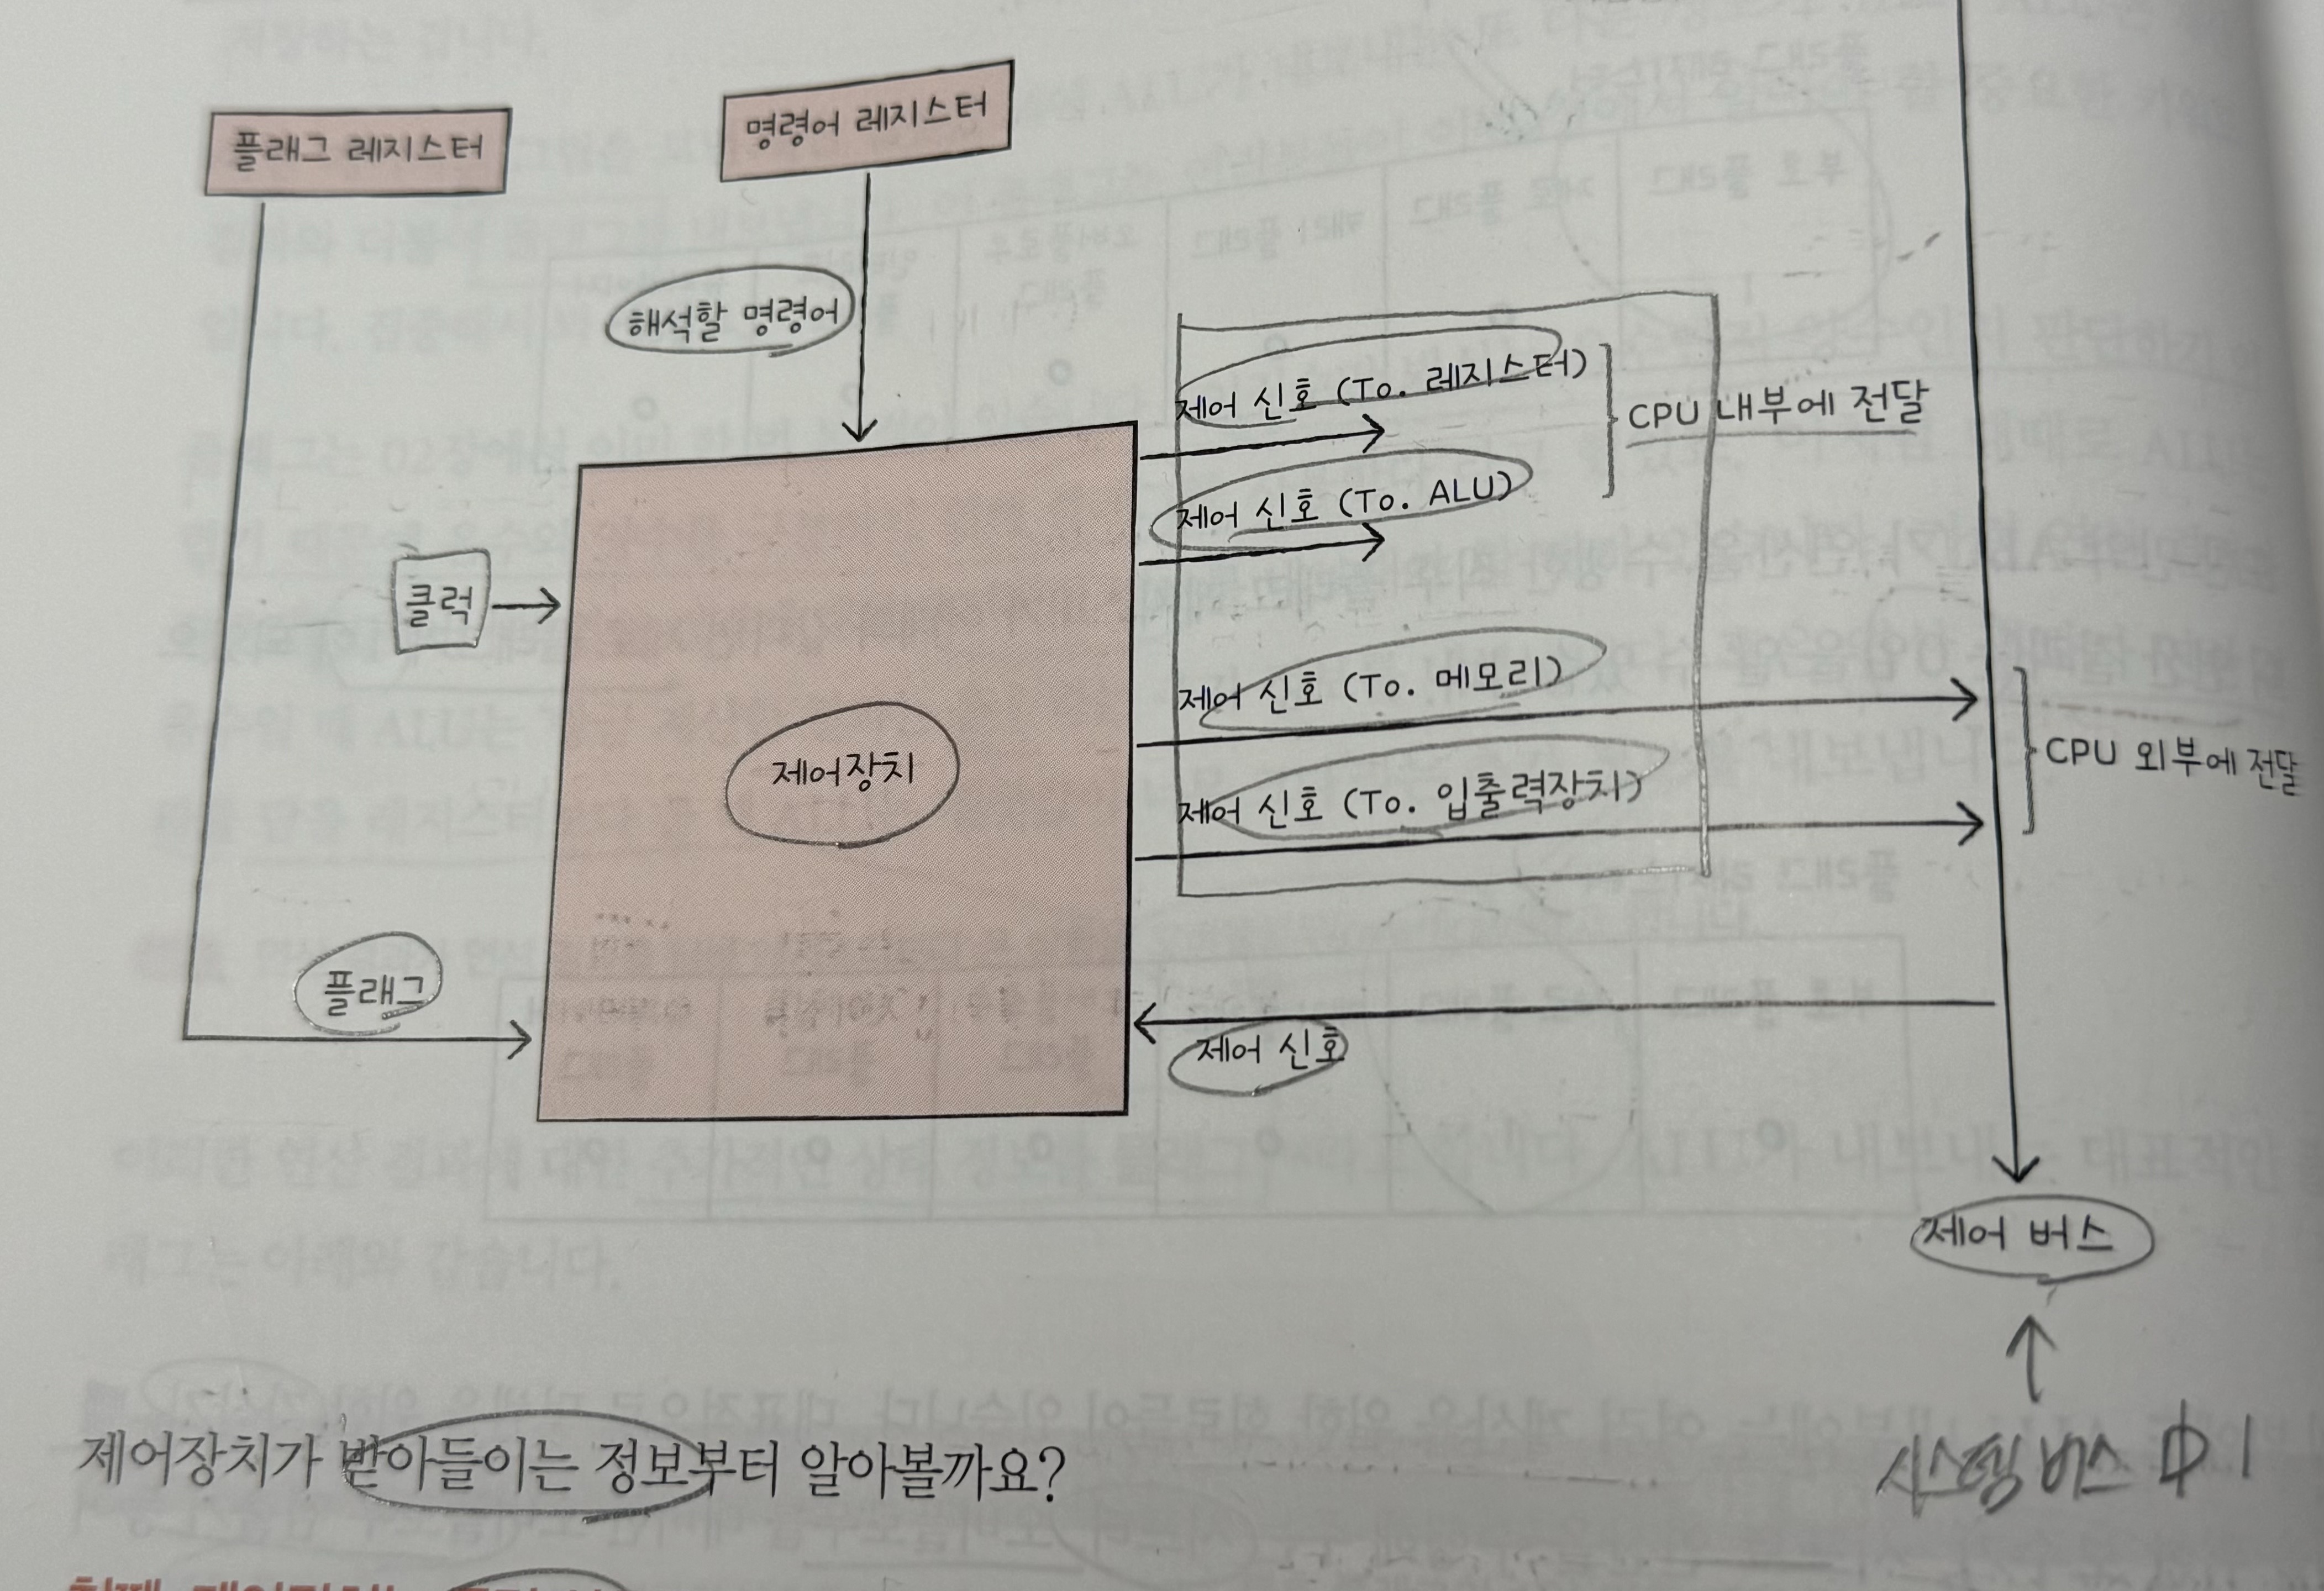 플래그 레지스터
명령어 레지스터
해석할 명령어
제어 신호 (To. 레지스터)
CPU 내부에 전달
제어 신호 (To. ALU)
클럭
제어 신호 (To. 메모리)
CPU 외부에 전달
제어장치
제어 신호 (To. 입출력장치)
플래그
제어 신호
제어 버스
제어장치가 받아들이는 정보부터 알아볼까요?
시스템 버스 中 1